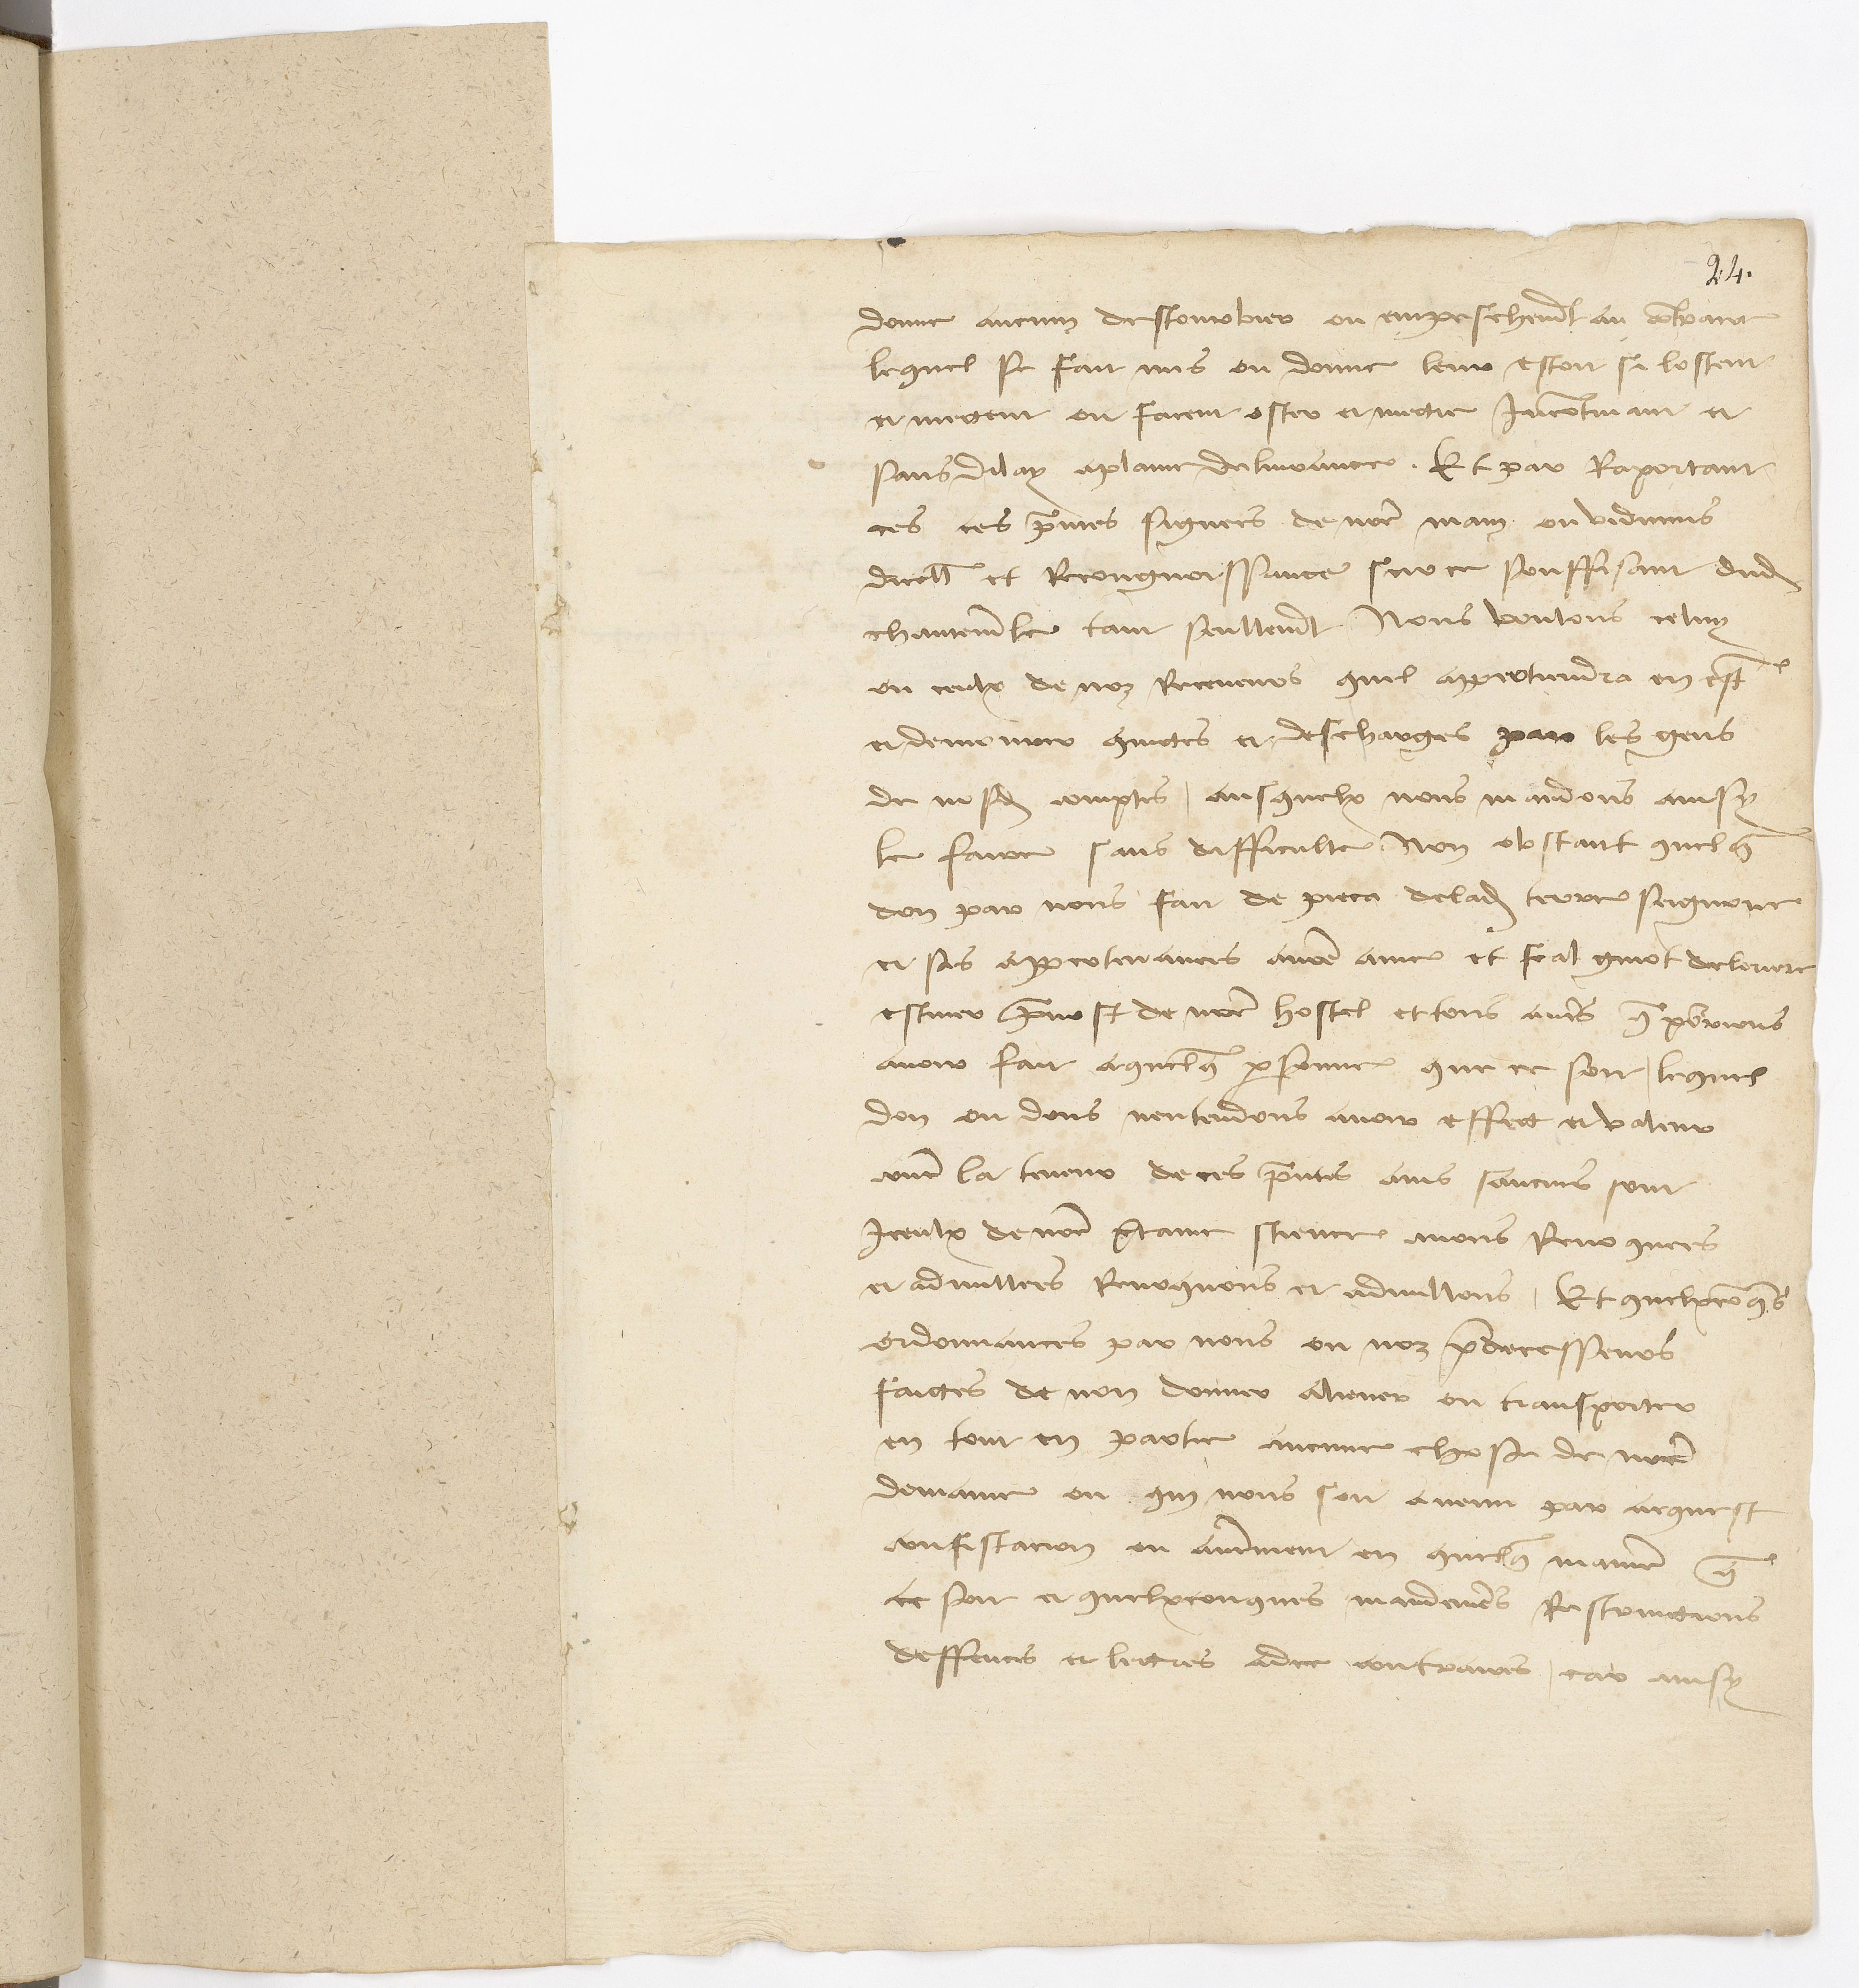 24.
donne aucun destourbier ou empeschemt au contraire
lequel se fait mis ou donne leur estoit si lostent
et mettent ou facent oster et mettre Incontinant et
sans delay a plaine delivrance. Et par Raportant
ces ces pntes signees de nre main ou vidimus
dicelles et Recongnoissance sur ce souffisant dud
chantemle tant seullemt Nous voulons celuy
ou ceulx de noz Receveurs quil appartiendra en estre
et demourer quictes et descharges par les gens
de nosd comptes / ausquelx nous mandons ainsy
le faire sans difficulte Non obstant quelq
don par nous fait de pieca de lad terre seigneurie
et ses appertenances a nre ame et feal
prevost de nre hostel et tous autres q pourrions
avoir fait a quelq personne que ce soit / lequel
don ou dons nentendons avoir effect et valeur
contre la teneur de ces pntes ains saucuns sont
Iceulx de nre certaine science avons Revoquees
et adnullees Revoquons et adnullons / Et quelxconqs
ordonnances par nous ou noz predecesseurs
faictes de non donner aliener ou transporter
en tout en partie aucune chose de nre
demaine ou qui nous soit avenu par acquest
confiscacion ou autrement en quelq maniere q
ce soit et quelxconques mandemens Restrinctions
deffences et lettres a ce contraires / car ainsy